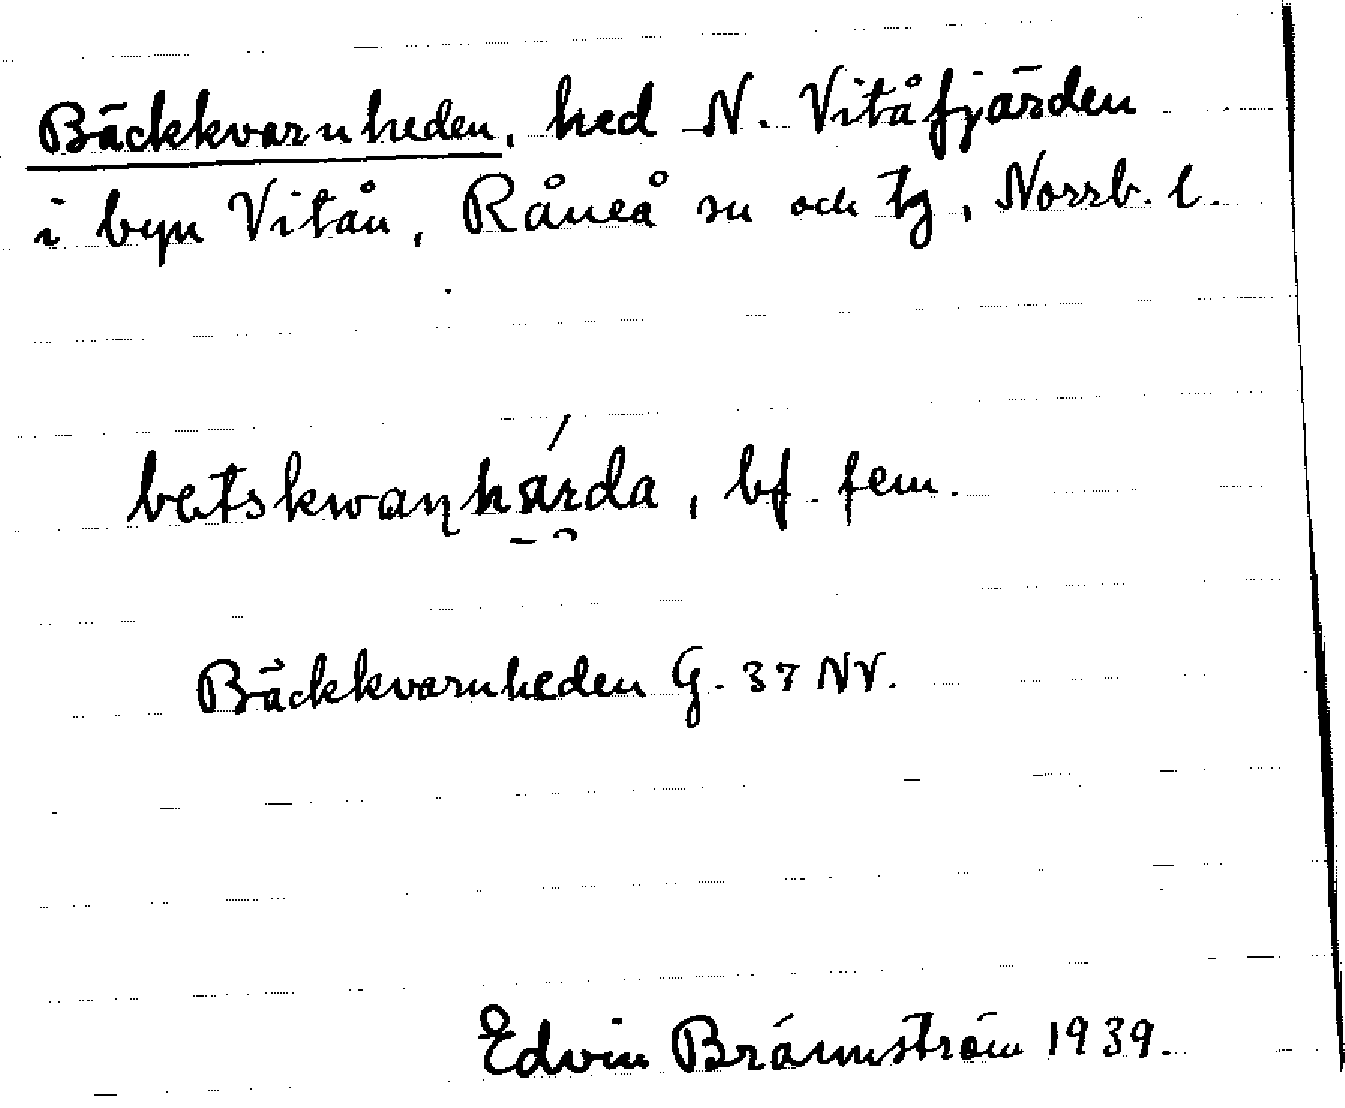 Bäckkvarnheden, hed N. Vitåfjärden
i byn Vitån, Råneå sn och tg, Norrb. l.
bf. fem.
Bäckkvarnheden G. 37 NV.
Edvin Brännström 1939.